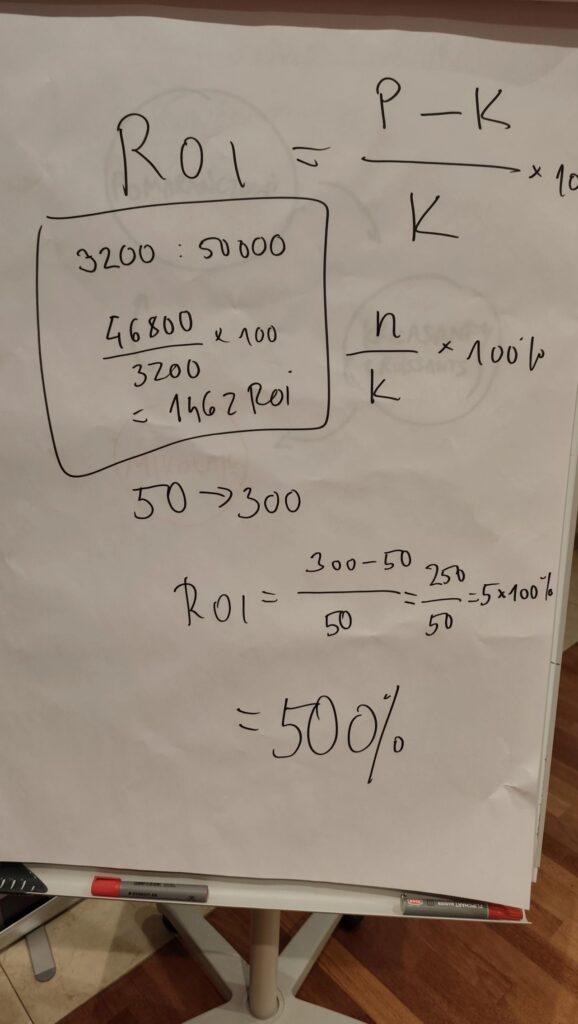 ROI = P - K / K × 10
3200 : 50000
46800 / 3200 × 100
= 1462 ROI
n / k × 100%
50 → 300
ROI = 300 - 50 / 50 = 250 / 50 = 5 × 100%
= 500%